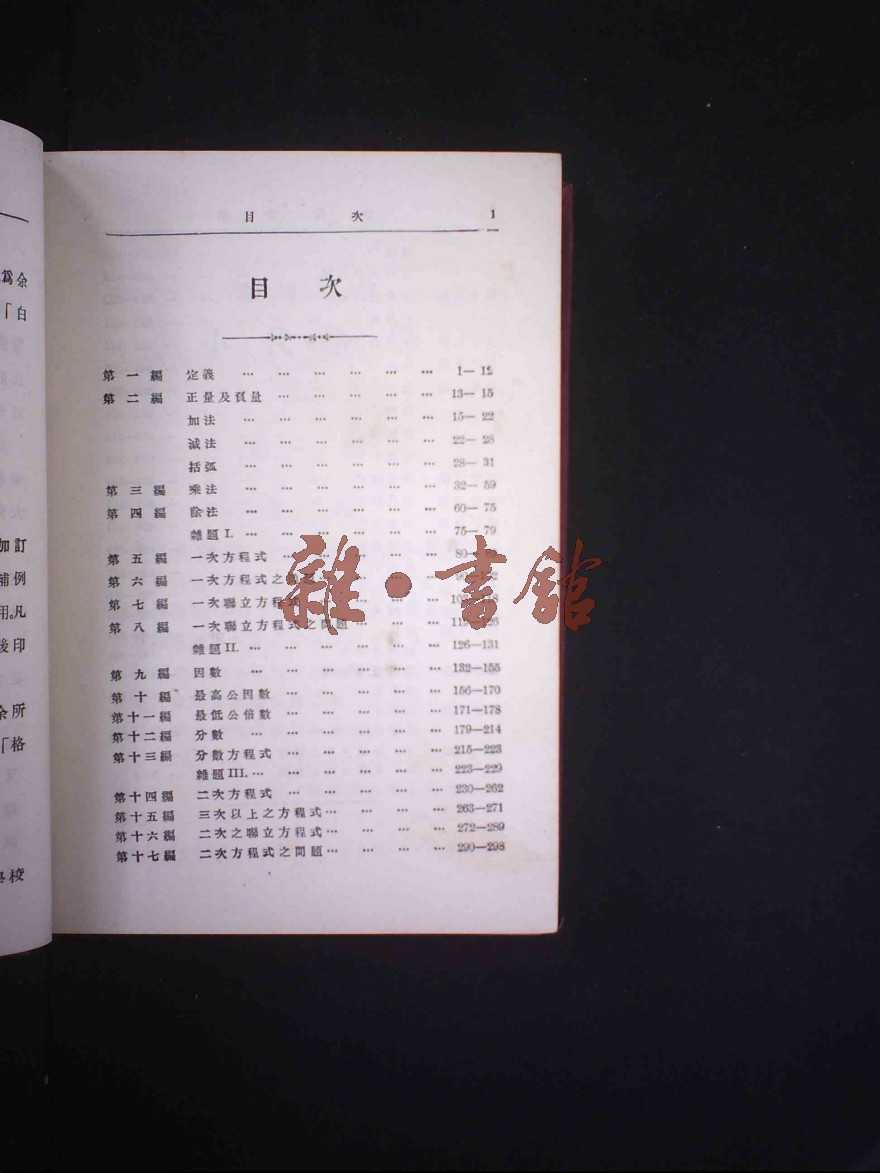 為余
「白
加訂
補例
用。凡
後印
余所
「格
學校
目 次 1
目 次
第一編 定義 … … … … … … 1— 12
第二編 正量及負量 … … … … … 13— 15
加法 … … … … … … 15— 22
減法 … … … … … … 22— 28
括弧 … … … … … … 28— 31
第三編 乘法 … … … … … … 32— 59
第四編 除法 … … … … … … 60— 75
雜題 I. … … … … … … 75— 79
第五編 一次方程式 … … … … … 80—
第六編 一次方程式之
第七編 一次聯立方程式
第八編 一次聯立方程式之問題 … … … 119—126
雜題 II. … … … … … … 126—131
第九編 因數 … … … … … … 132—155
第十編 最高公因數 … … … … … 156—170
第十一編 最低公倍數 … … … … … 171—178
第十二編 分數 … … … … … … 179—214
第十三編 分數方程式 … … … … … 215—223
雜題 III. … … … … … … 223—229
第十四編 二次方程式 … … … … … 230—262
第十五編 三次以上之方程式 … … … … 263—271
第十六編 二次之聯立方程式 … … … … 272—289
第十七編 二次方程式之問題 … … … … 290—298
雜·書館